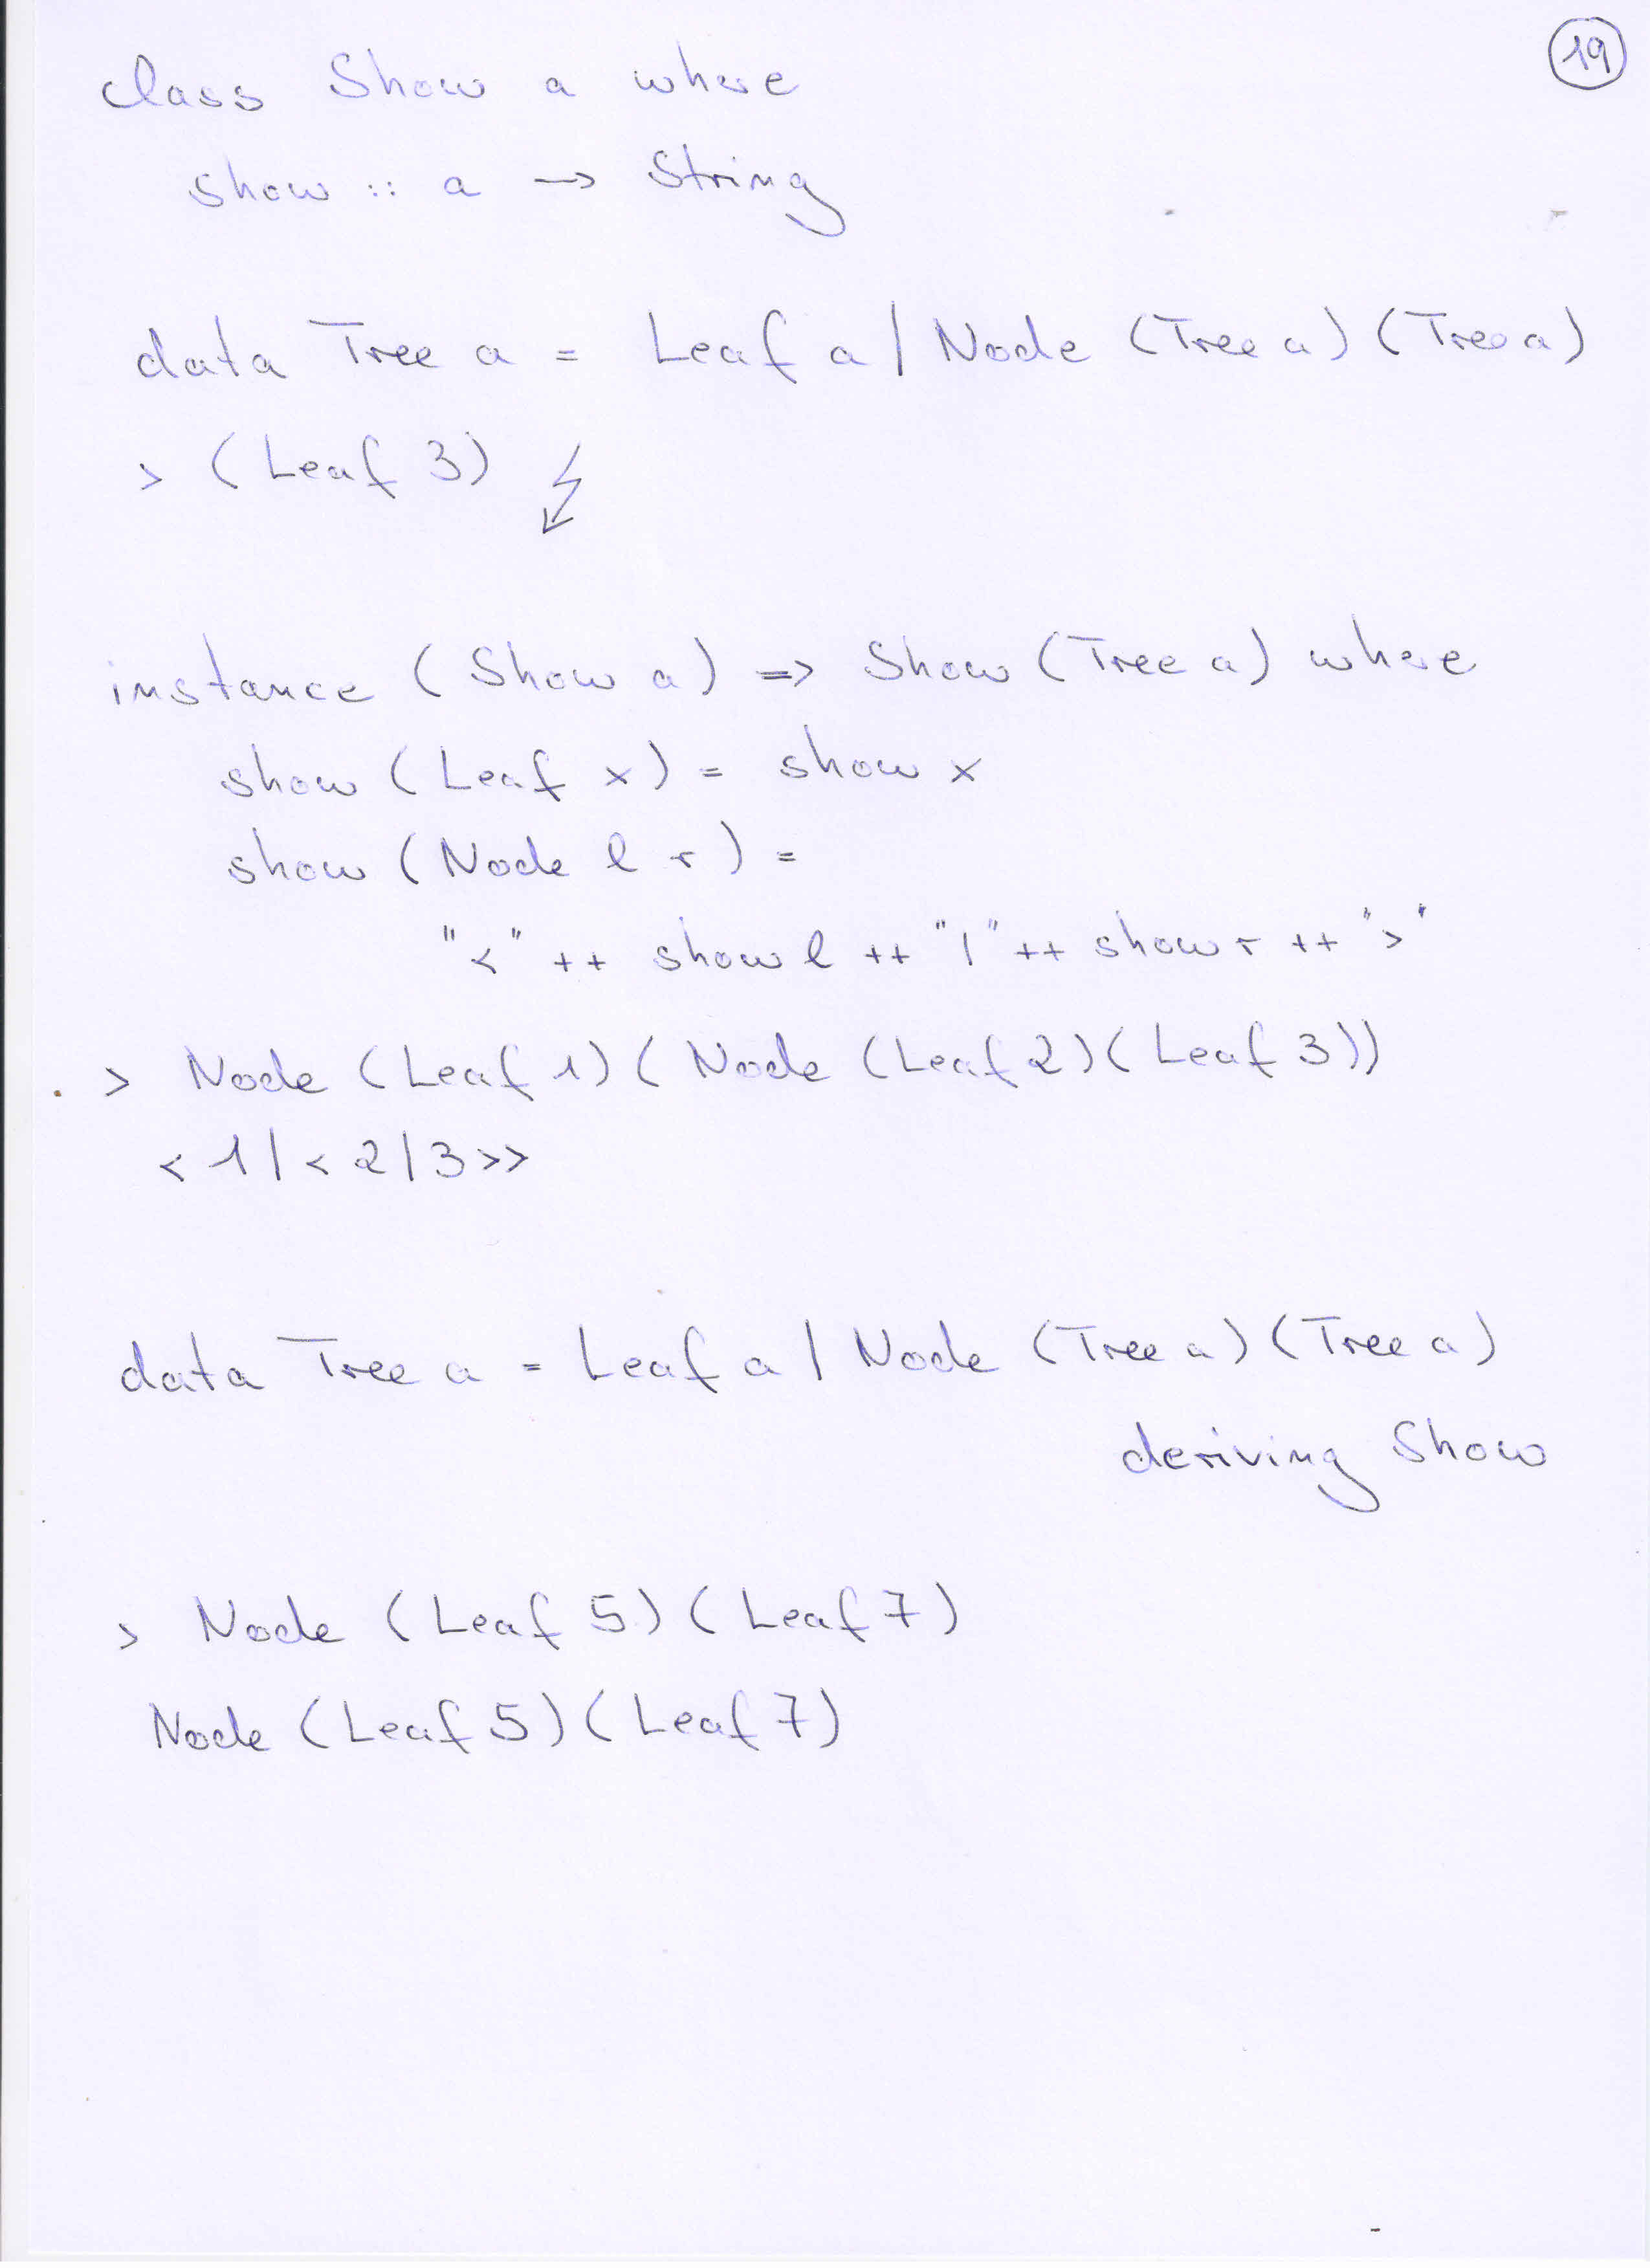 19
class Show a where
show :: a -> String
data Tree a = Leaf a | Node (Tree a) (Tree a)
> (Leaf 3) ↯
instance (Show a) => Show (Tree a) where
show (Leaf x) = show x
show (Node l r) =
"<" ++ show l ++ "|" ++ show r ++ ">"
> Node (Leaf 1) (Node (Leaf 2) (Leaf 3))
<1|<2|3>>
data Tree a = Leaf a | Node (Tree a) (Tree a)
deriving Show
> Node (Leaf 5) (Leaf 7)
Node (Leaf 5) (Leaf 7)